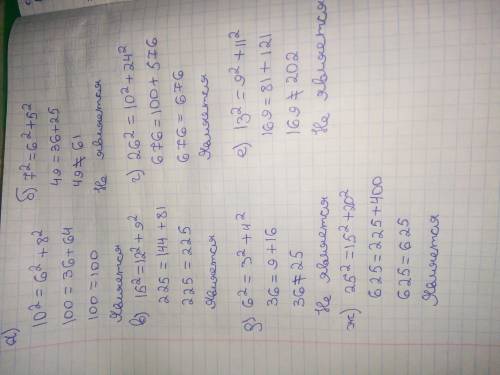 а)
10² = 6² + 8²
100 = 36 + 64
100 = 100
Является
б) 7² = 6² + 5²
49 = 36 + 25
49 ≠ 61
Не является
в) 15² = 12² + 9²
225 = 144 + 81
225 = 225
Является
г) 26² = 10² + 24²
676 = 100 + 576
676 = 676
Является
д) 6² = 3² + 4²
36 = 9 + 16
36 ≠ 25
Не является
е) 13² = 9² + 11²
169 = 81 + 121
169 ≠ 202
Не является
ж) 25² = 15² + 20²
625 = 225 + 400
625 = 625
Является